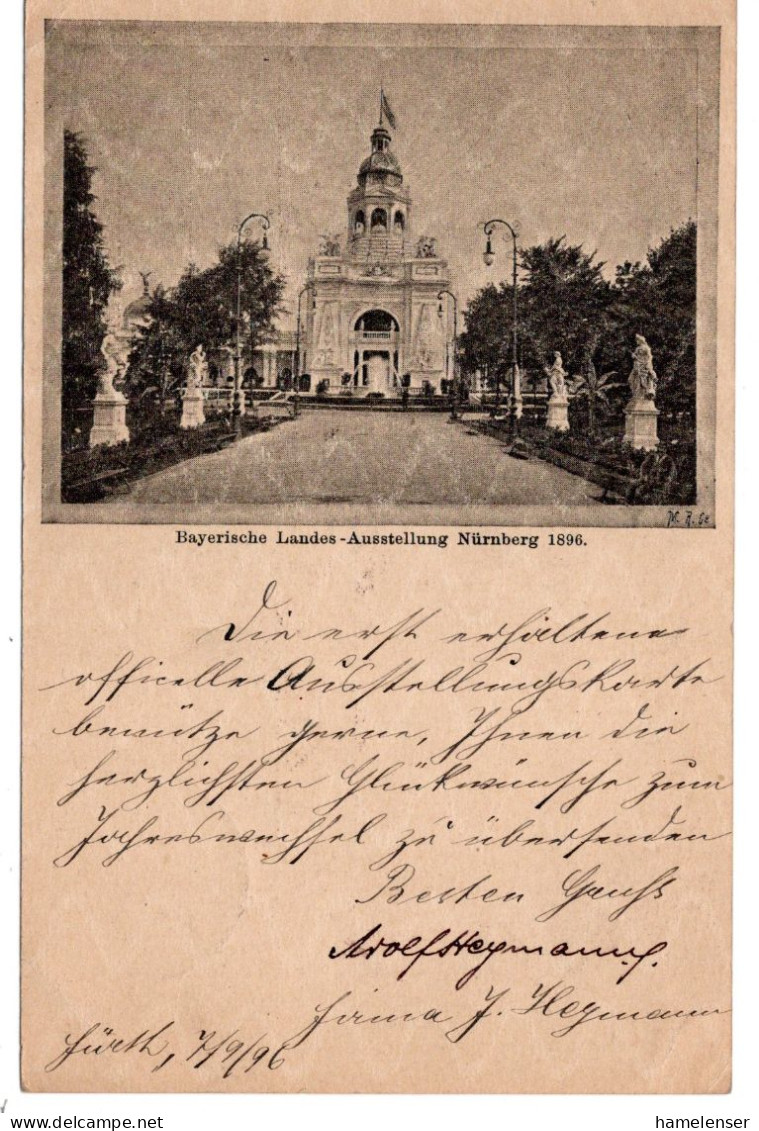 Bayerische Landes-Ausstellung Nürnberg 1896.
Die erst erhaltene
officielle Ausstellungskarte
benütze gerne, Ihnen die
herzlichsten Glückwünsche zum
Jahreswechsel zu übersenden
Besten Gruß
Adolf Heymann
Firma J. Heymann
Fürth, 7/9/96
hamelenser
www.delcampe.net